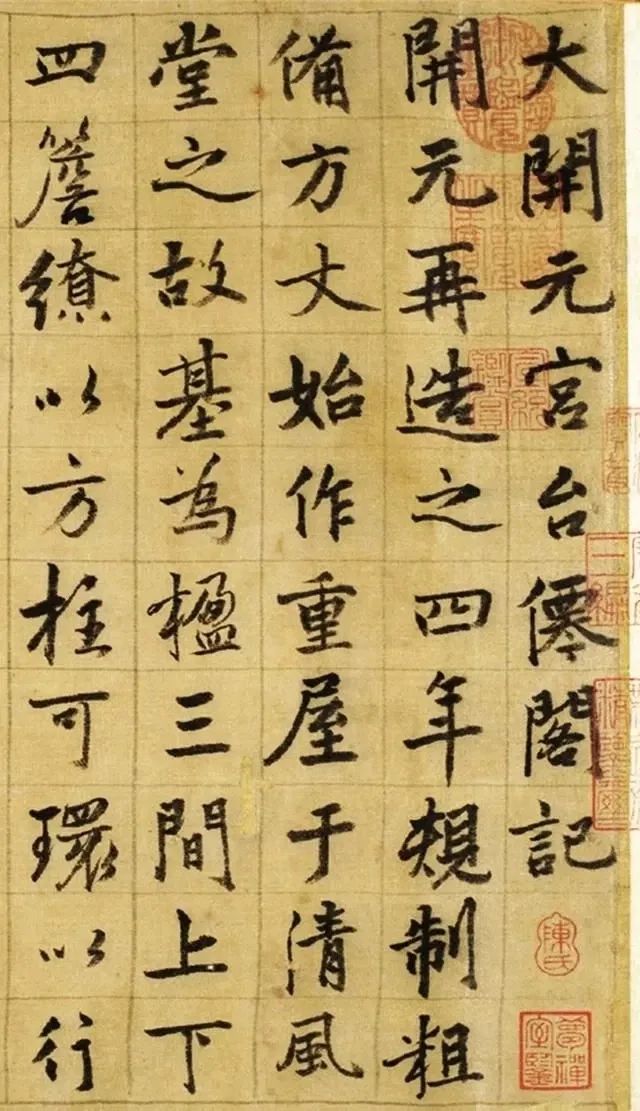 大開元宮台僊閣記
開元再造之四年規制粗
備方丈始作重屋于清風
堂之故基為楹三間上下
四簷繚以方柱可環以行
陳氏